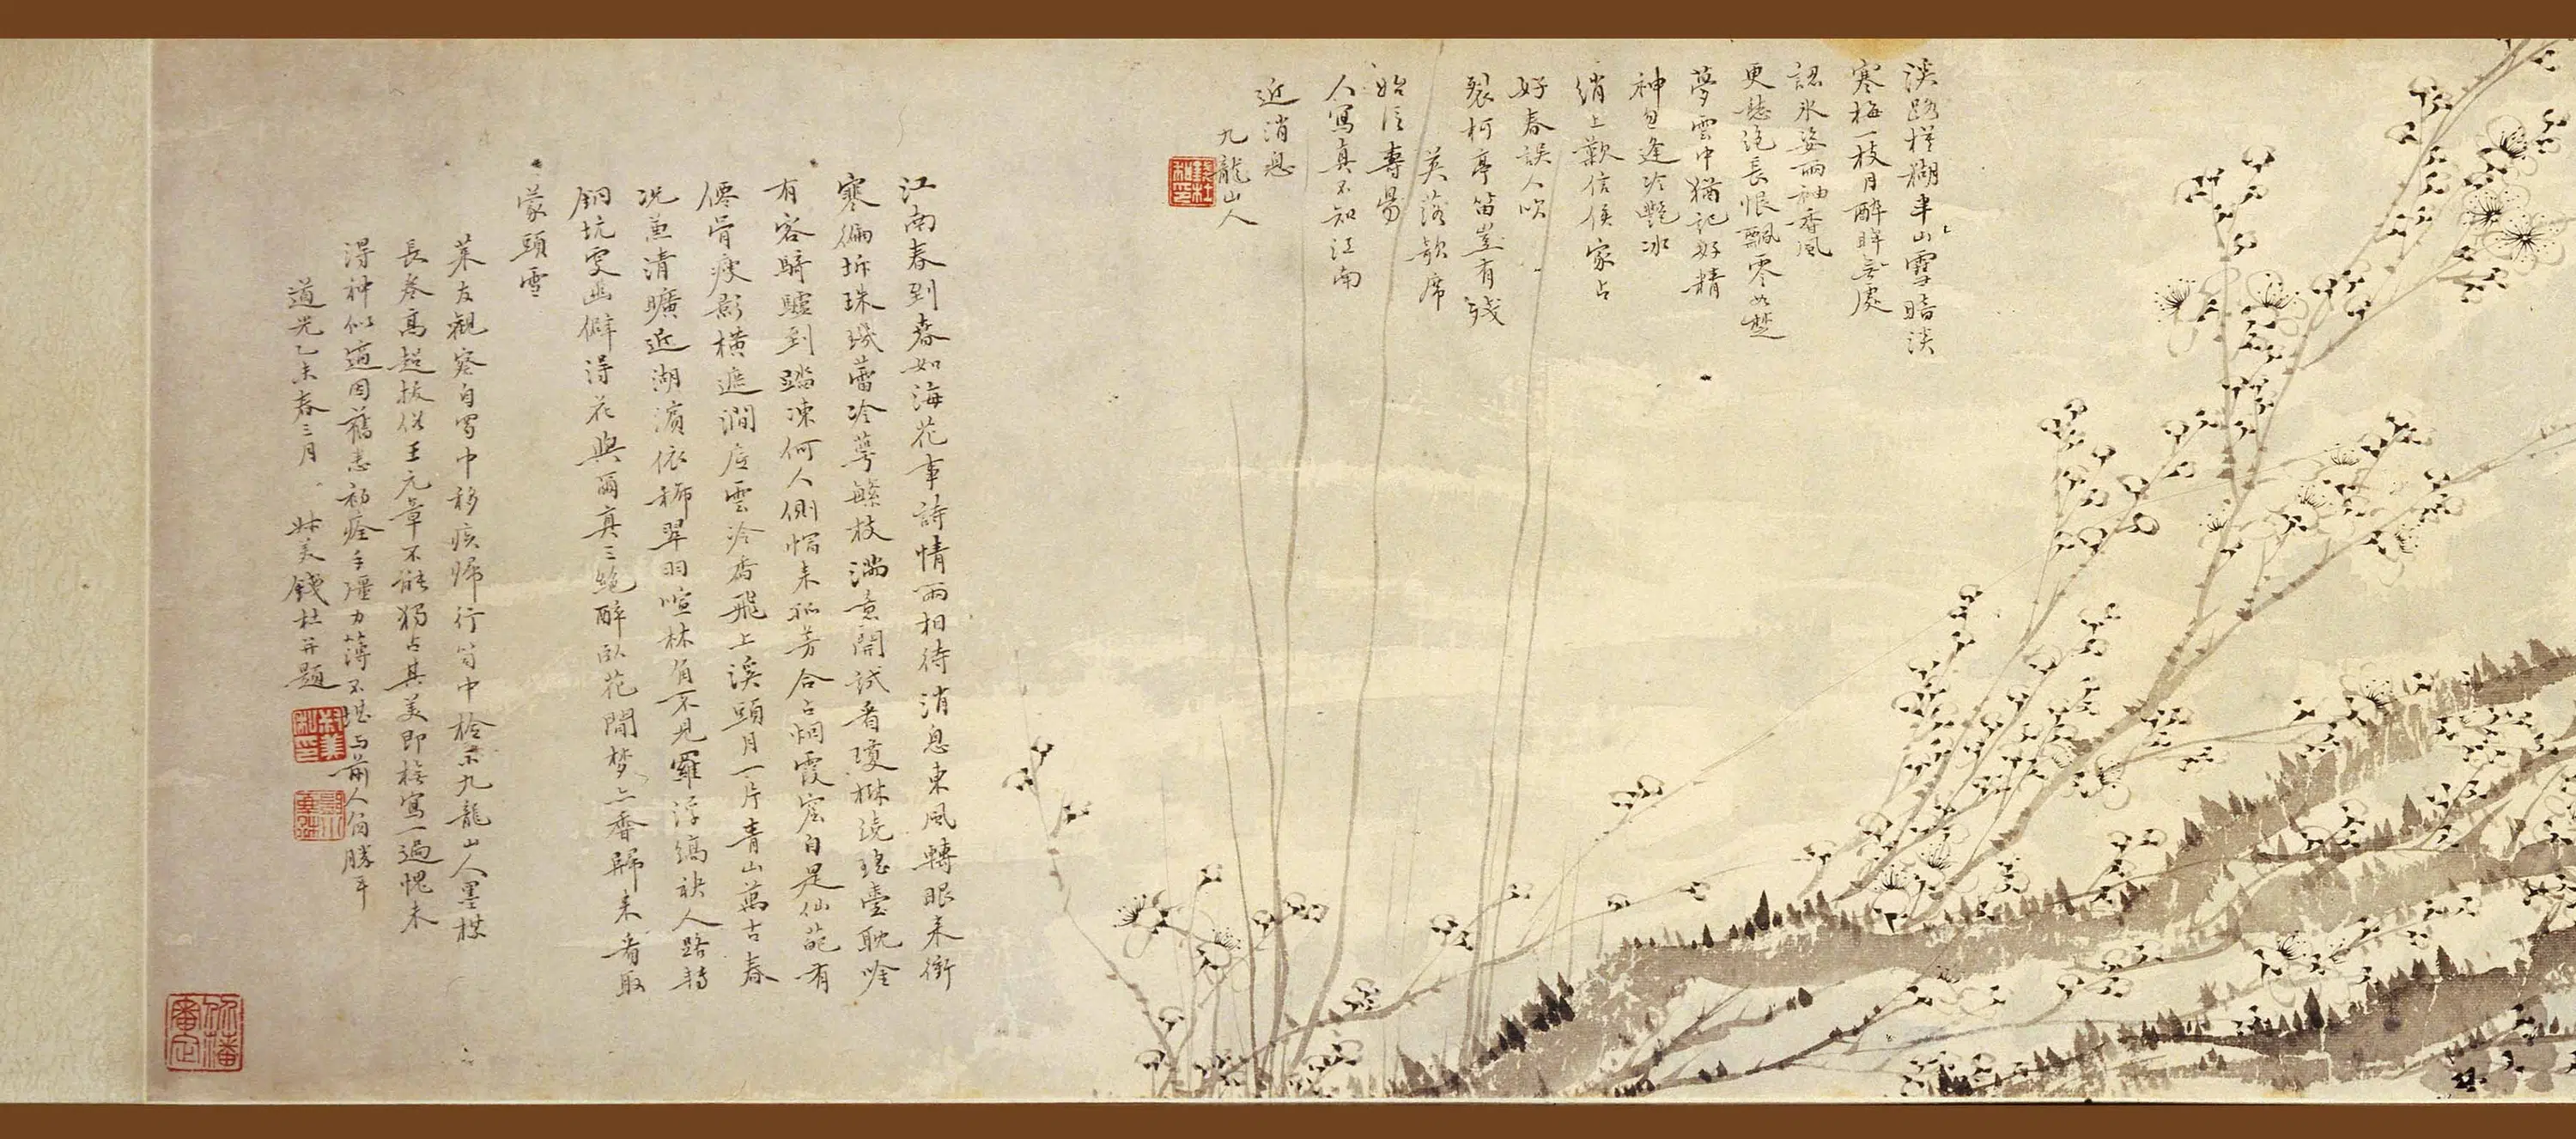 溪路模糊半山雪暗淡
寒梅一枝月醉眸無處
認氷姿兩袖香風
更聽說長恨飄零如楚
夢雲中猶記好精
神曾逢冷艷冰
綃上歎信侯家占
好春誤人吹
裂柯亭笛豈有殘
英落歌席
始信專昜
人寫真不知江南
近消息
九龍山人
江南春到春如海花事詩情兩相待消息東風轉眼来衝
寒徧坼珠璣蕾冷萼繁枝滿意開試看瓊樹浇瑤臺耽吟
有客騎驢到踏凍何人側帽来孤芳合占烟霞窟自是仙葩有
僊骨瘦影橫遮澗底雲冷香飛上溪頭月一片青山萬古春
況兼清曠近湖濱依稀翠羽喧林角不見羅浮縞袂人路轉
銅坑更幽僻得花與爾真三絶醉臥花間梦亦香歸来看取
蒙頭雪
萊友觀察自蜀中移疾歸行笥中檢示九龍山人墨楳
長卷高超拔俗王元章不能獨占其美即橅寫一過愧未
得神似適因舊恙初痊手彊力薄不堪与前人角勝耳
道光乙未春三月 叔美錢杜并題